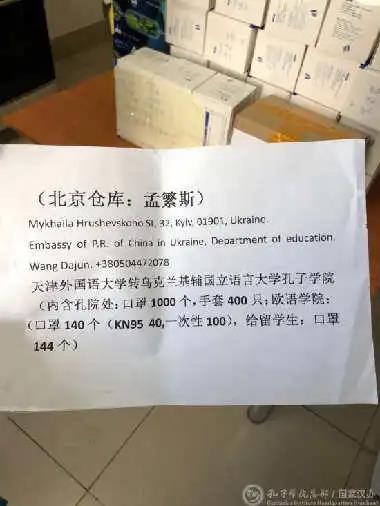 （北京仓库：孟繁斯）
Mykhaila Hrushevskoho St, 32, Kyiv, 01901, Ukraine.
Embassy of P.R. of China in Ukraine, Department of education.
Wang Dajun. +380504472078
天津外国语大学转乌克兰基辅国立语言大学孔子学院
（内含孔院处：口罩 1000 个，手套 400 只；欧语学院：
（口罩 140 个（KN95 40,一次性 100），给留学生：口罩
144 个）
孔子学院总部 / 国家汉办